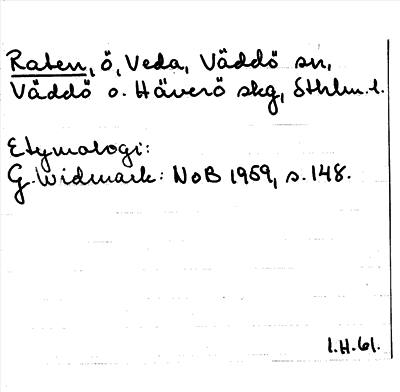 Raten, ö, Veda, Väddö sn,
Väddö o. Häverö skg, Sthlm.l.
Etymologi:
G. Widmark: NoB 1959, s. 148.
l.H.61.